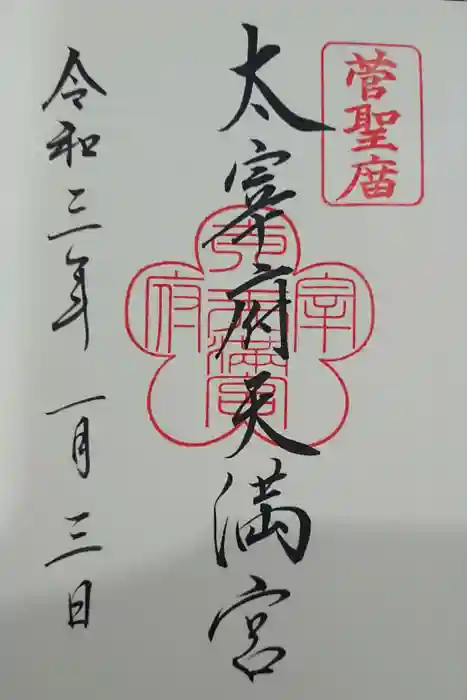 菅聖庿
太宰府天満宮
令和三年一月三日